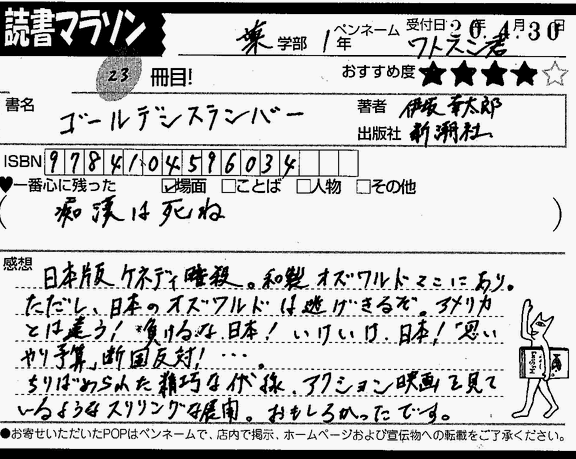 読書マラソン
薬 学部 1 年 ペンネーム ワトスン君 受付日: 20年 4月 30日
23 冊目! おすすめ度 ★★★★☆
書名 ゴールデンスランバー
著者 伊坂 幸太郎
出版社 新潮社
ISBN 9784104596034
♥一番心に残った ☑場面 □ことば □人物 □その他
( 痴漢は死ね )
感想
日本版ケネディ暗殺。和製オズワルドここにあり。
ただし、日本のオズワルドは逃げきるぞ。アメリカ
とは違う! 負けるな日本! いけいけ、日本!「思い
やり予算」断固反対! …。
ちりばめられた精巧な伏線、アクション映画を見て
いるようなスリリングな展開。おもしろかったです。
●お寄せいただいたPOPはペンネームで、店内で掲示、ホームページおよび宣伝物への転載をご了承ください。